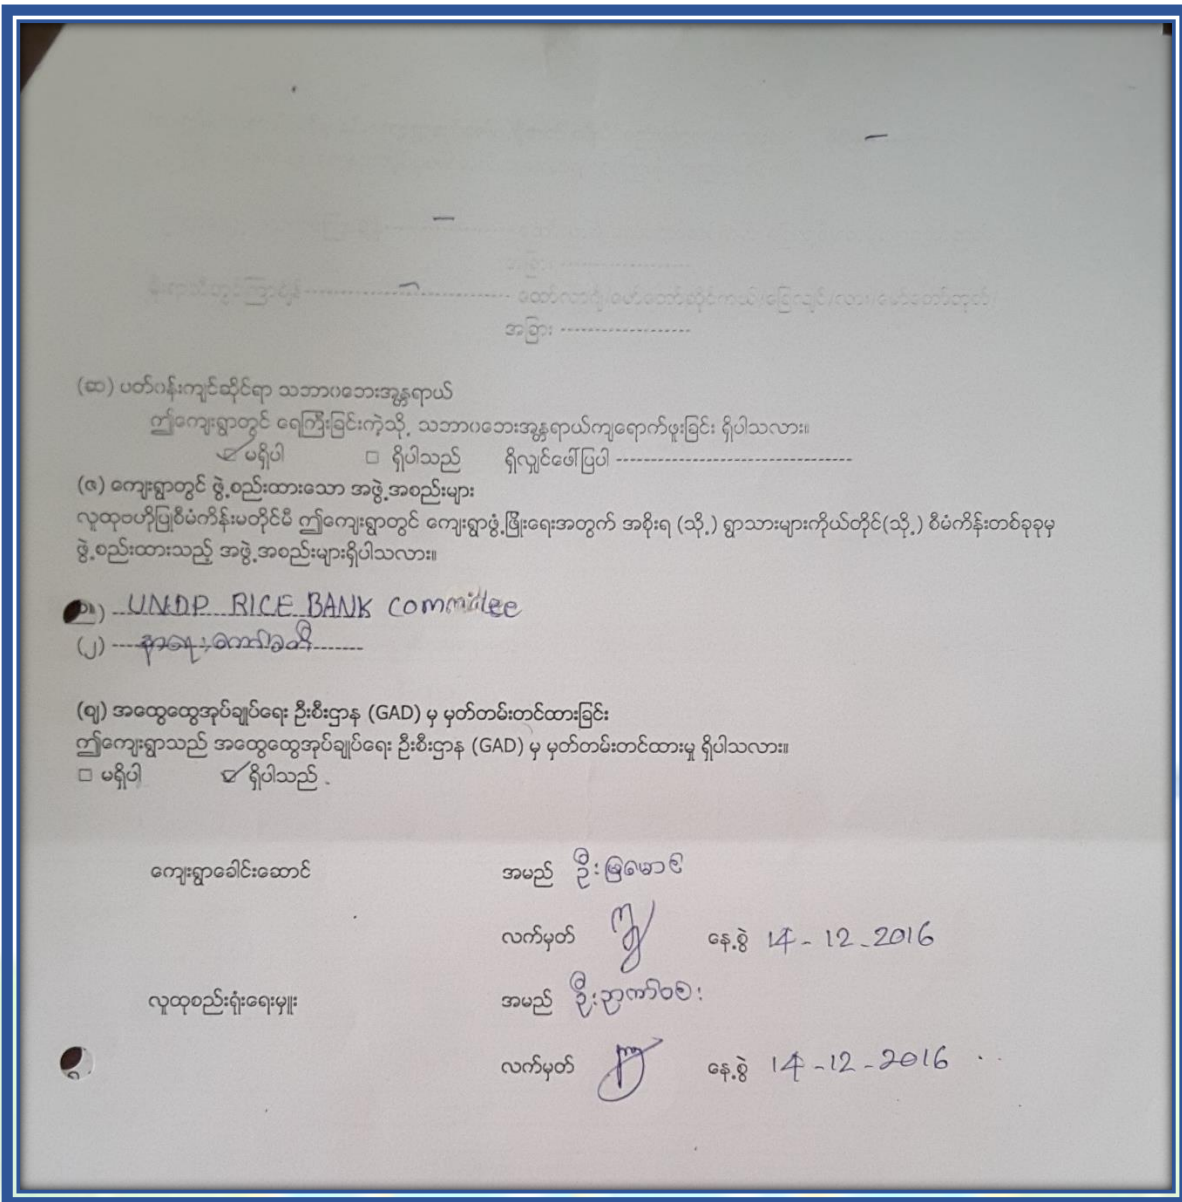 အခြား -------------------
အခြား -------------------
(ဆ) ပတ်ဝန်းကျင်ဆိုင်ရာ သဘာဝဘေးအန္တရာယ်
ဤကျေးရွာတွင် ရေကြီးခြင်းကဲ့သို့ သဘာဝဘေးအန္တရာယ်ကျရောက်ဖူးခြင်း ရှိပါသလား။
☑ မရှိပါ □ ရှိပါသည် ရှိလျှင်ဖော်ပြပါ ----------------------------------
(ဇ) ကျေးရွာတွင် ဖွဲ့စည်းထားသော အဖွဲ့အစည်းများ
လူထုဗဟိုပြုစီမံကိန်းမတိုင်မီ ဤကျေးရွာတွင် ကျေးရွာဖွံ့ဖြိုးရေးအတွက် အစိုးရ (သို့) ရွာသားများကိုယ်တိုင်(သို့) စီမံကိန်းတစ်ခုခုမှ
ဖွဲ့စည်းထားသည့် အဖွဲ့အစည်းများရှိပါသလား။
UNDP RICE BANK committee
(၂) နာရေးကော်မတီ
(ဈ) အထွေထွေအုပ်ချုပ်ရေး ဦးစီးဌာန (GAD) မှ မှတ်တမ်းတင်ထားခြင်း
ဤကျေးရွာသည် အထွေထွေအုပ်ချုပ်ရေး ဦးစီးဌာန (GAD) မှ မှတ်တမ်းတင်ထားမှု ရှိပါသလား။
□ မရှိပါ ☑ ရှိပါသည် .
ကျေးရွာခေါင်းဆောင် အမည် ဦး
လက်မှတ် နေ့စွဲ 14-12-2016
လူထုစည်းရုံးရေးမှူး အမည် ဦး
လက်မှတ် နေ့စွဲ 14-12-2016